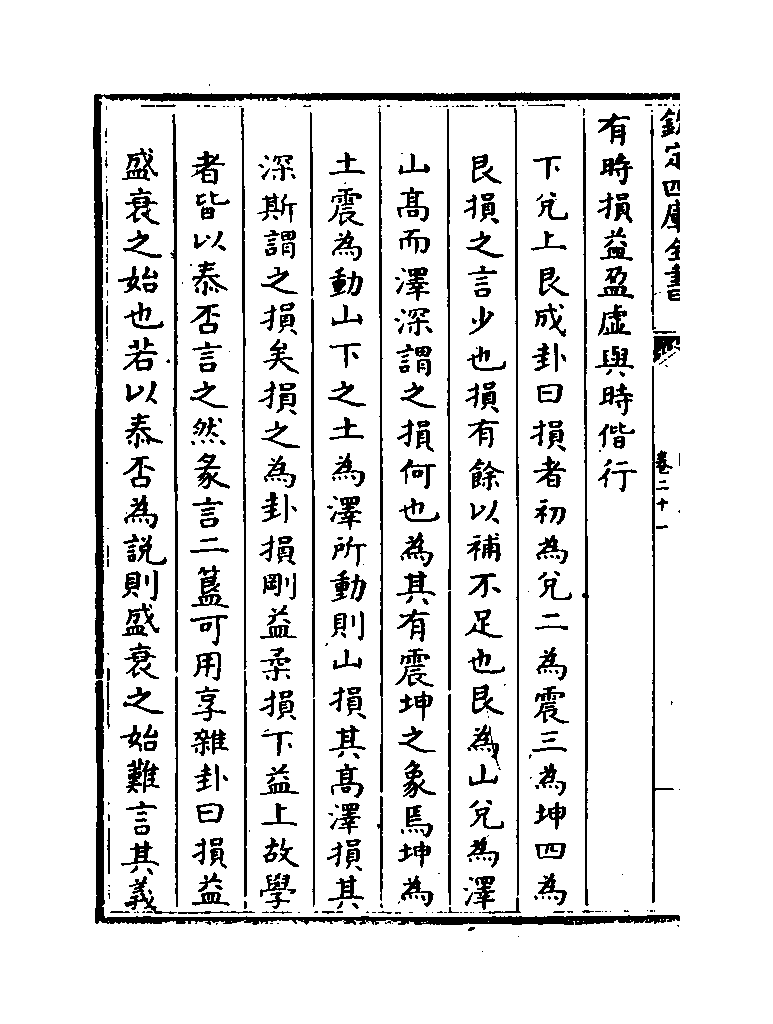 欽定四庫全書
卷二十一
有時損益盈虛與時偕行
下兊上艮成卦曰損者初為兊二為震三為坤四為
艮損之言少也損有餘以補不足也艮為山兊為澤
山髙而澤深謂之損何也為其有震坤之象焉坤為
土震為動山下之土為澤所動則山損其髙澤損其
深斯謂之損矣損之為卦損剛益柔損下益上故學
者皆以泰否言之然彖言二簋可用享雜卦曰損益
盛衰之始也若以泰否為説則盛衰之始難言其義